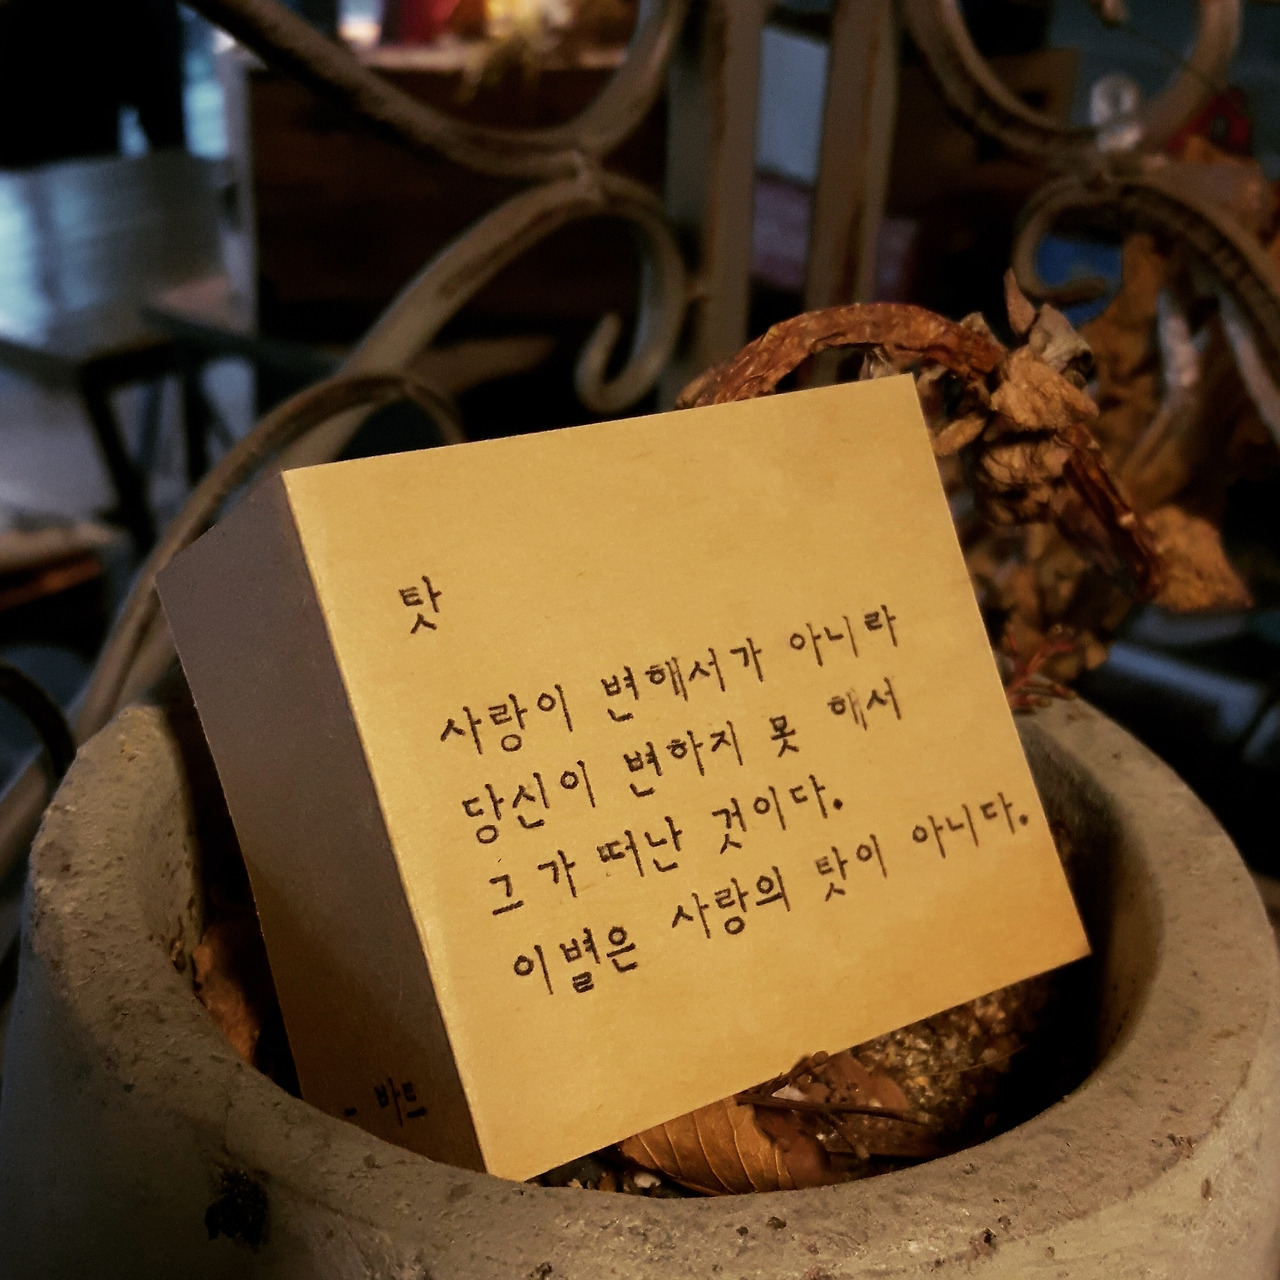 탓
사랑이 변해서가 아니라
당신이 변하지 못 해서
그가 떠난 것이다.
이별은 사랑의 탓이 아니다.
- 바트